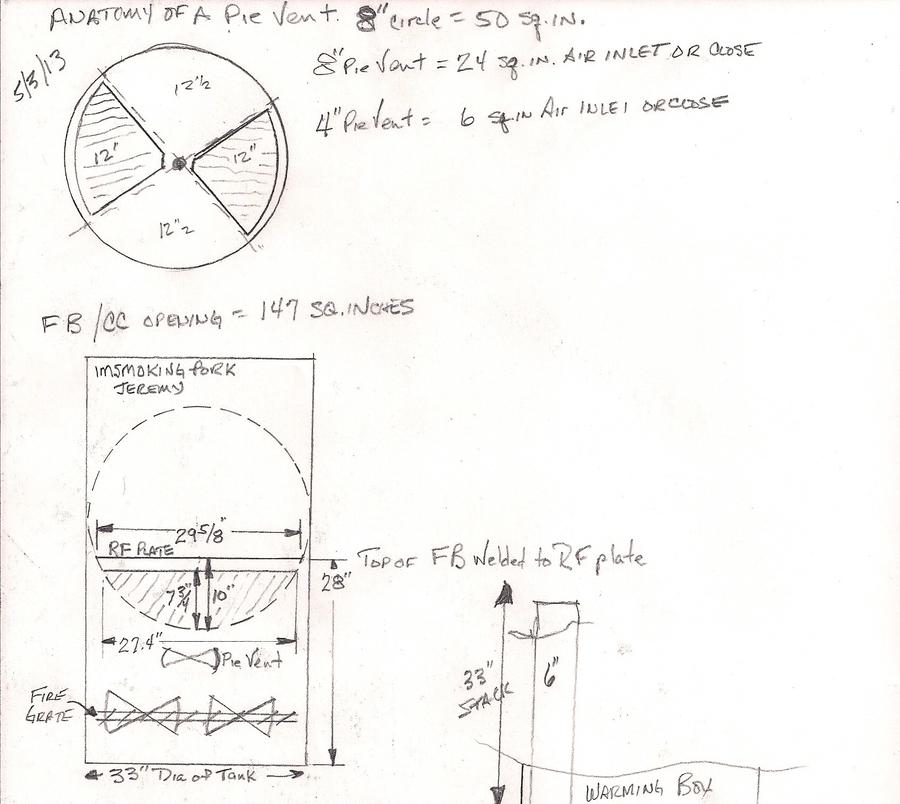 ANATOMY OF A Pie Vent. 8" circle = 50 sq.in.
5/3/13
8" Pie Vent = 24 sq.in. AIR INLET OR CLOSE
4" Pie Vent = 6 sq.in Air INLET OR CLOSE
12"½
12"
12"
12"½
FB/CC OPENING = 147 SQ. INCHES
IMSMOKING PORK
JEREMY
29-5/8"
RF PLATE
Top of FB Welded to RF plate
28"
7¾"
10"
27.4"
Pie Vent
33"
STACK
6"
FIRE
GRATE
33" Dia of Tank
WARMING BOX